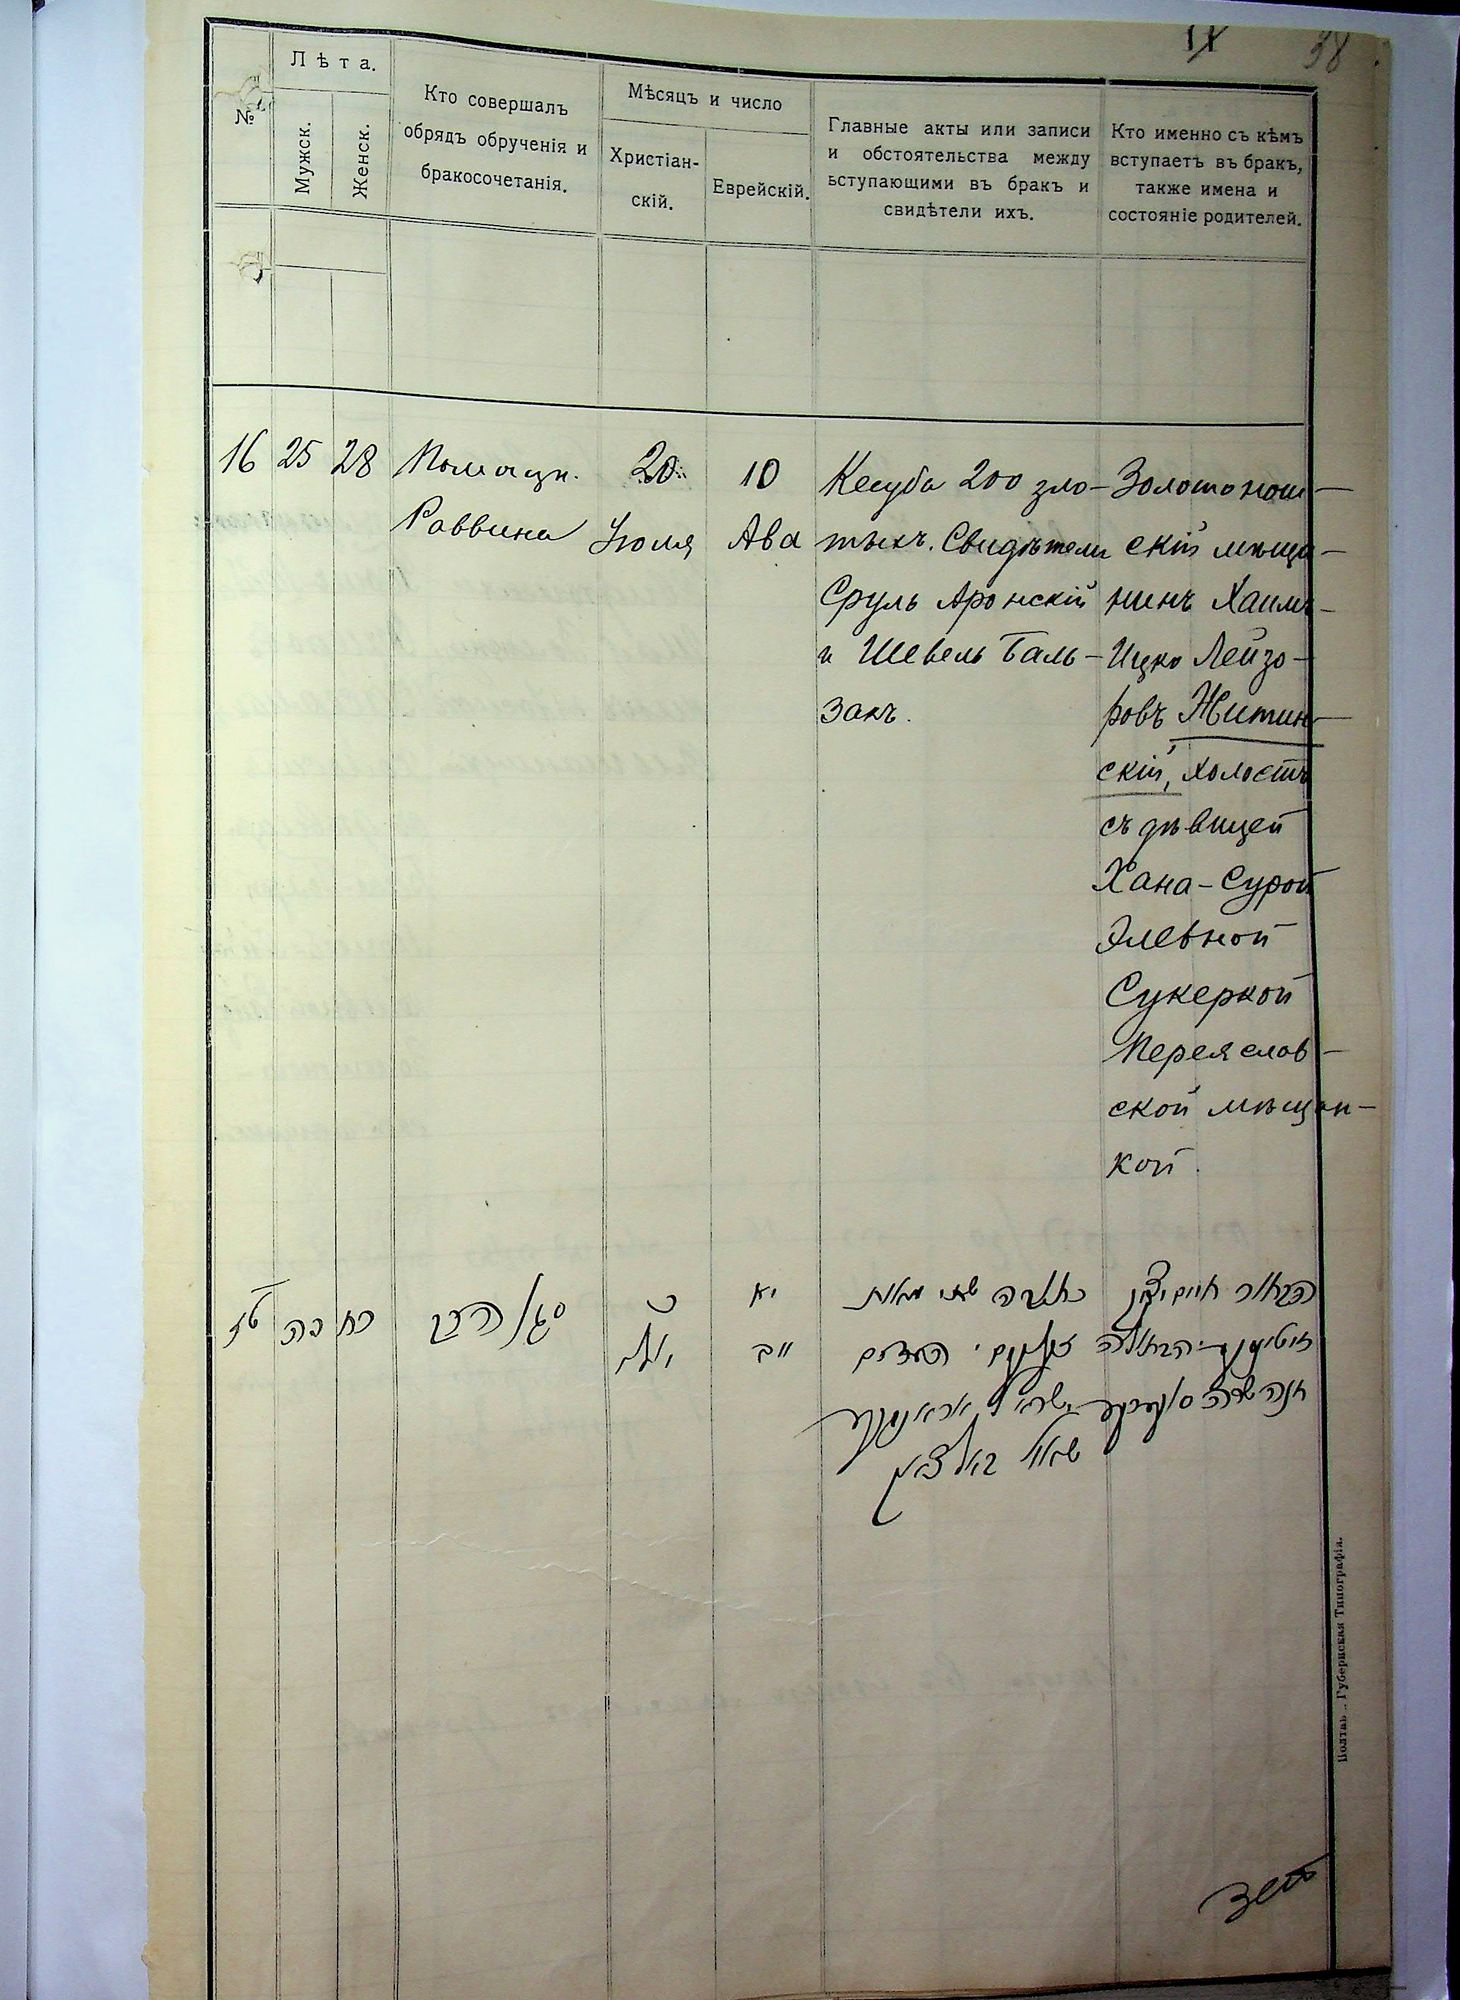 38
№
Лѣта.
Мужск.
Женск.
Кто совершалъ
обрядъ обрученія и
бракосочетанія.
Мѣсяцъ и число
Христіан-
скій.
Еврейскій.
Главные акты или записи
и обстоятельства между
вступающими въ бракъ и
свидѣтели ихъ.
Кто именно съ кѣмъ
вступаетъ въ бракъ,
также имена и
состояніе родителей.
16
25
28
Помощн.
Раввина
20
Іюля
10
Ава
Кесуба 200 зло-
тыхъ. Свидѣтели
Сруль Аронскій
и Шевель Баль-
закъ.
Золотонош-
скій мѣща-
нинъ Хаимъ-
Ицко Лейзо-
ровъ Житин-
скій, холостъ
съ дѣвицей
Хана-Сурой
Элевной
Сукеркой
Переяслов-
ской мѣщан-
кой.
טז
כה
כח
כ
יולי
יא
כתובה שתי מאות
זהובים העדים
שאול באלזאק
הבחור חיים יצחק
חנה שרה
Полтава. Губернская Типографія.